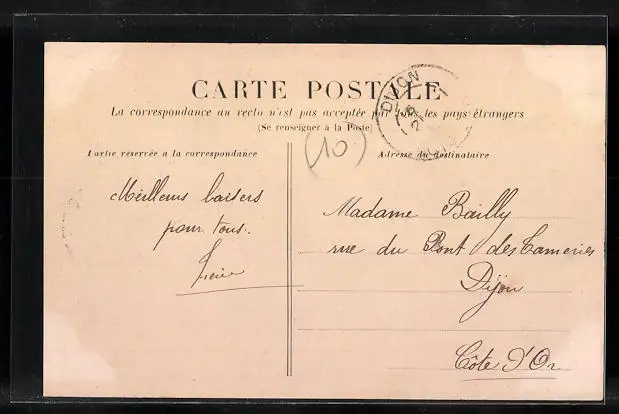 CARTE POSTALE
La correspondance au recto n'est pas acceptée par tous les pays étrangers
(Se renseigner à la Poste)
(10)
DIJON
Partie réservée à la correspondance
Adresse du destinataire
Meilleurs baisers
pour tous.
Madame Bailly
rue du Pont des Tanneries
Dijon
Côte d'Or